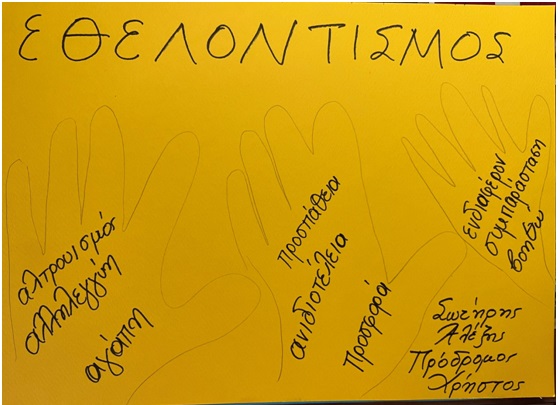 ΕΘΕΛΟΝΤΙΣΜΟΣ
αλτρουισμός
αλληλεγγύη
αγάπη
Προσπάθεια
ανιδιοτέλεια
Προσφορά
ενδιαφέρον
συμπαράσταση
βοηθώ
Σωτήρης
Αλέξης
Πρόδρομος
Χρήστος